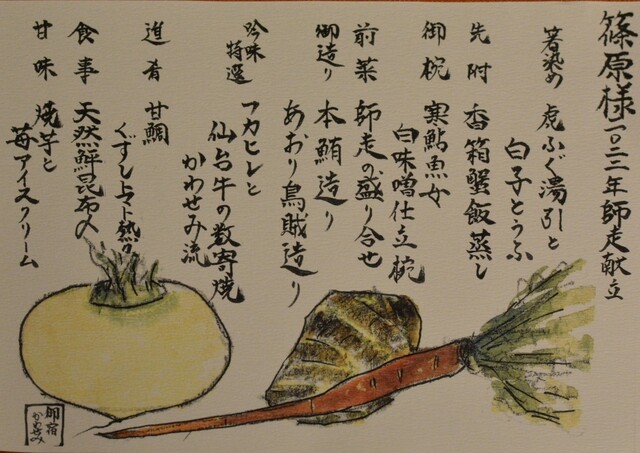 篠原様 二〇二二年師走献立
箸染め 虎ふぐ湯引と
白子とうふ
先附 香箱蟹飯蒸し
御椀 寒鮎魚女
白味噌仕立椀
前菜 師走の盛り合せ
御造り 本鮪造り
あおり烏賊造り
吟味特選 フカヒレと
仙台牛の数寄焼
かわせみ流
進肴 甘鯛
ぐずしトマト熱々
食事 天然鰤昆布〆
甘味 焼芋と
苺アイスクリーム
御宿
かわせみ